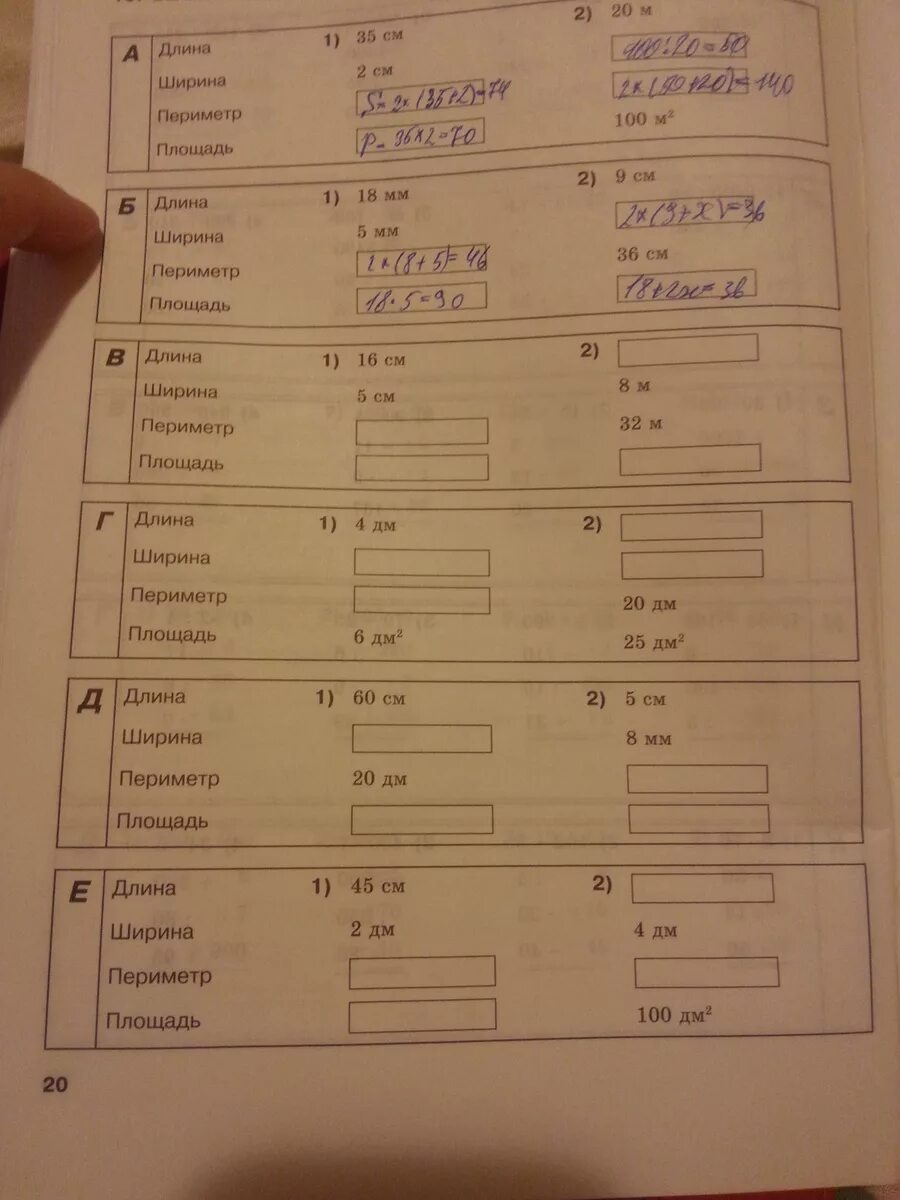 А Длина 1) 35 см 2) 20 м
Ширина 2 см 100:20=50
Периметр S=2×(35+2)=74 2×(50+20)=140
Площадь P=35×2=70 100 м²
Б Длина 1) 18 мм 2) 9 см
Ширина 5 мм 2×(9+x)=36
Периметр 2×(8+5)=46 36 см
Площадь 18·5=90 18+2x=36
В Длина 1) 16 см 2)
Ширина 5 см 8 м
Периметр 32 м
Площадь
Г Длина 1) 4 дм 2)
Ширина
Периметр 20 дм
Площадь 6 дм² 25 дм²
Д Длина 1) 60 см 2) 5 см
Ширина 8 мм
Периметр 20 дм
Площадь
Е Длина 1) 45 см 2)
Ширина 2 дм 4 дм
Периметр
Площадь 100 дм²
20